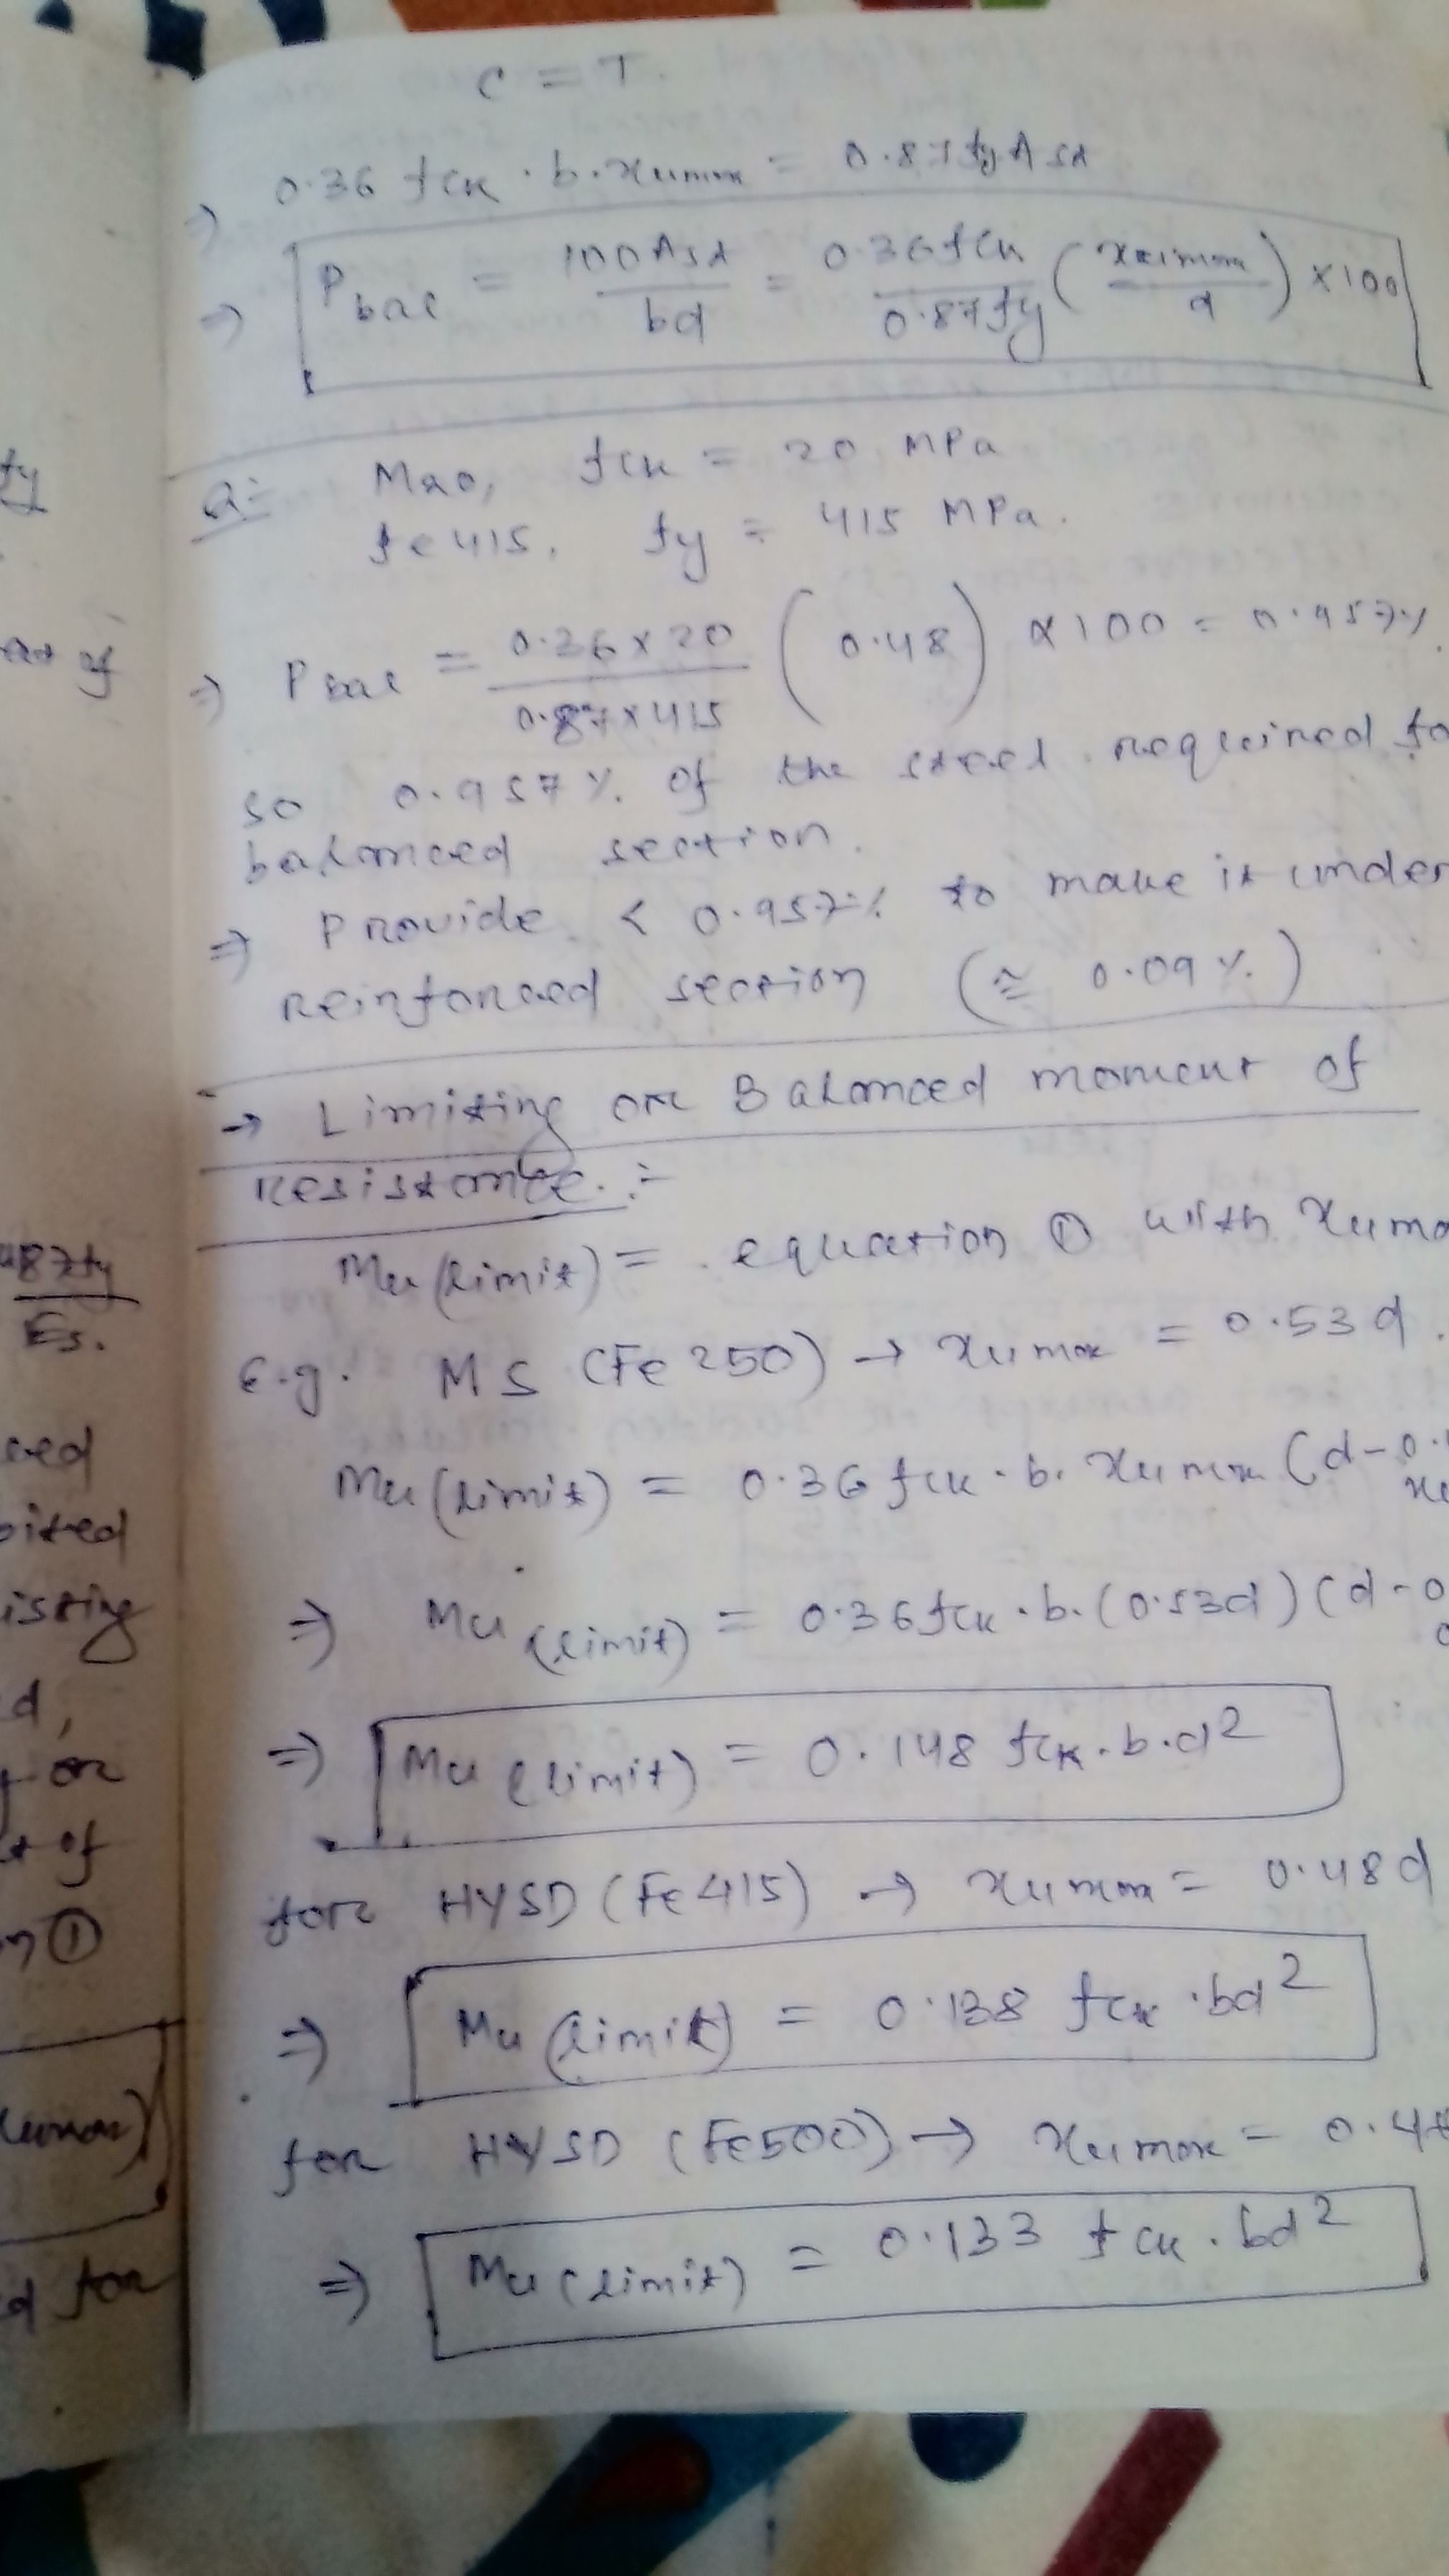 fy
at of
0.87fy
Es.
isting
d,
or
t of
n ①
xumax)
d for
C = T.
⇒ 0.36 fck · b. xumax = 0.87 fy Ast
⇒ Pbal = 100 Ast / bd = 0.36 fck / 0.87 fy (xumax / d) × 100
Q:- M20, fck = 20 MPa
fe415, fy = 415 MPa.
⇒ Pbal = 0.36 × 20 / 0.87 × 415 (0.48) × 100 = 0.957%.
so 0.957%. of the steel required fo
balanced section.
⇒ Provide < 0.957% to make it under
reinforced section (≅ 0.09%.)
→ Limiting or Balanced moment of
Resistance. :-
Mu (limit) = equation ① with xuma
E.g. MS (Fe 250) → xumax = 0.53 d.
Mu (limit) = 0.36 fck · b. xumax (d - 0.
⇒ Mu (limit) = 0.36 fck · b. (0.53d) (d - 0
⇒ Mu (limit) = 0.148 fck · b · d²
for HYSD (Fe 415) → xumax = 0.48 d
⇒ Mu (limit) = 0.138 fck · bd²
for HYSD (Fe500) → xumax = 0.4
⇒ Mu (limit) = 0.133 fck · bd²